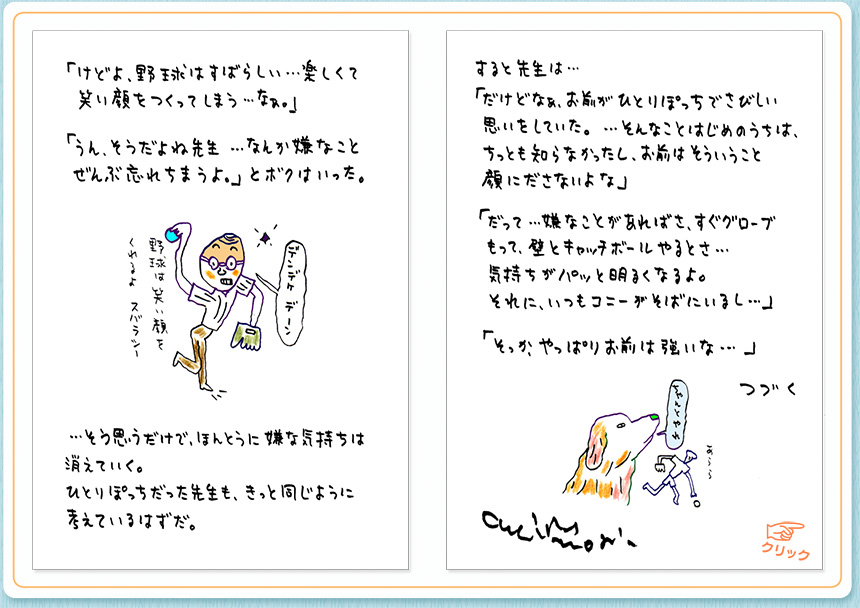 「けどよ、野球はすばらしい…楽しくて
笑い顔をつくってしまう…なぁ。」
「うん、そうだよね先生 …なんか嫌なこと
ぜんぶ忘れちまうよ。」とボクはいった。
野球は笑い顔を
くれるよ スバラシー
…そう思うだけで、ほんとうに嫌な気持ちは
消えていく。
ひとりぼっちだった先生も、きっと同じように
考えているはずだ。
すると先生は…
「だけどなぁ、お前がひとりぼっちでさびしい
思いをしていた。…そんなことはじめのうちは、
ちっとも知らなかったし、お前はそういうこと
顔にださないよな」
「だって…嫌なことがあればさ、すぐグローブ
もって、壁とキャッチボールやるとさ…
気持ちがパッと明るくなるよ。
それに、いつもコニーがそばにいるし…」
「そっか、やっぱりお前は強いな…」
つづく
ちゃんとやれ
あららら
クリック